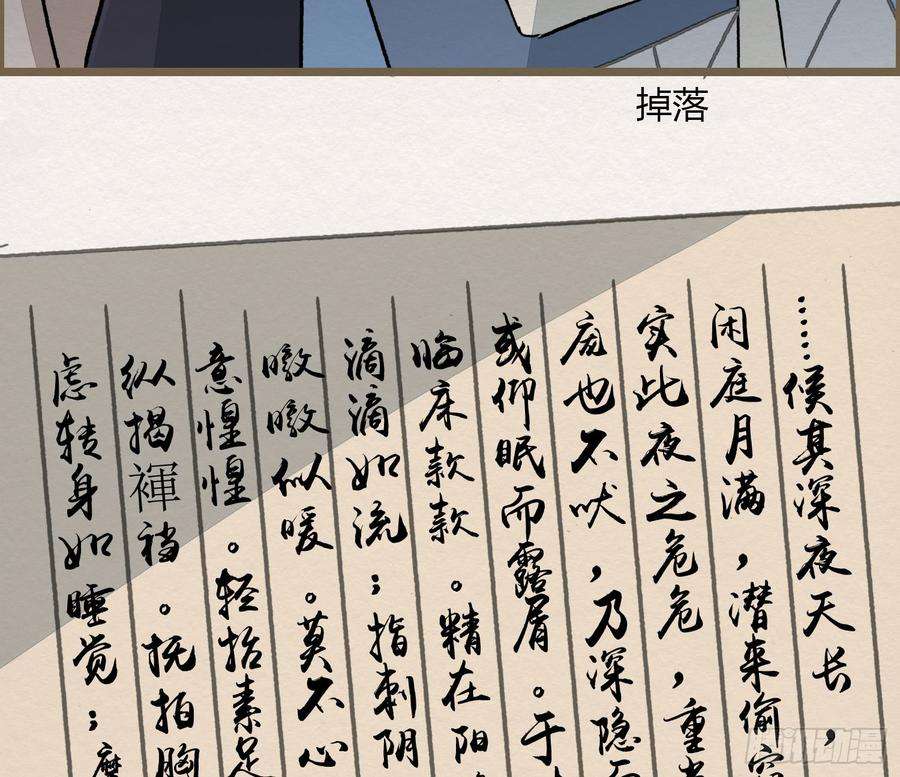 掉落
……候其深夜天长，
闲庭月满，潜来偷
实此夜之危危，重
厐也不吠，乃深隐
或仰眠而露屑。于
临床款款。精在阳
滴滴如流；指刺阴
暾暾似暖。莫不心
意惶惶。轻抬素足
纵揭裈裆。抚拍胸
虑转身如睡觉；